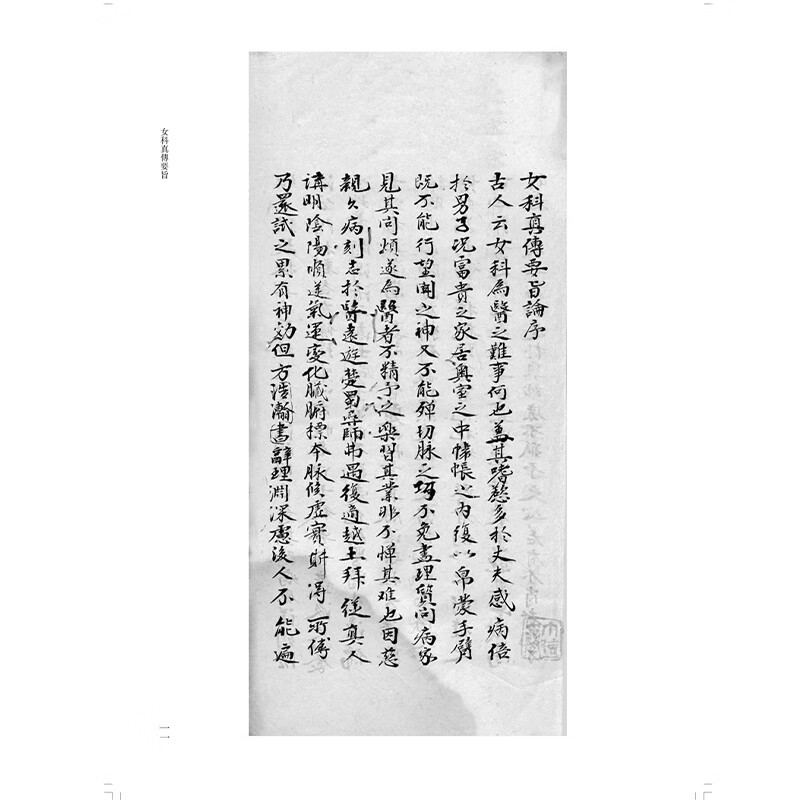 女科真傳要旨
女科真傳要旨論序
古人云女科為醫之難事何也蓋其嗜慾多於丈夫感病倍
於男子況富貴之家居奧室之中幃帳之內復以帛蒙手臂
既不能行望聞之神又不能殫切脉之巧不免盡理質問病家
見其問煩遂為醫者不精予之樂習其業非不憚其难也因慈
親久病刻志於醫遠遊楚蜀尋師弗遇復適越土拜從真人
講明陰陽順逆氣運变化臟腑標本脉候虛實斯得所傳
乃還試之累有神効但方浩瀚書辭理淵深慮後人不能遍
一一